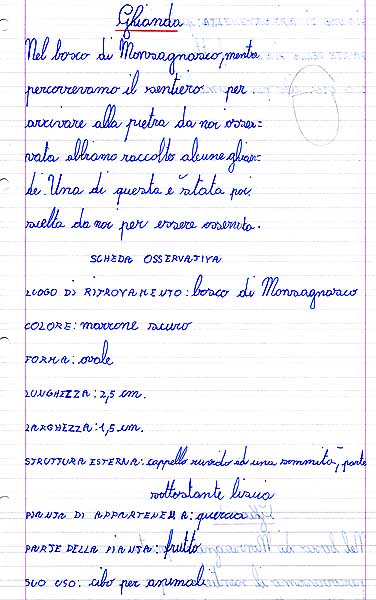 Ghianda
Nel bosco di Monsagnasco, mentre
percorrevamo il sentiero per
arrivare alla pietra da noi osser=
vata abbiamo raccolto alcune ghian=
de. Una di questa è stata poi
scelta da noi per essere osservata.
SCHEDA OSSERVATIVA
LUOGO DI RITROVAMENTO: bosco di Monsagnasco
COLORE: marrone scuro
FORMA: ovale
LUNGHEZZA: 2,5 cm.
LARGHEZZA: 1,5 cm.
STRUTTURA ESTERNA: cappello ruvido ad una sommità, parte
sottostante liscia
PIANTA DI APPARTENENZA: quercia
PARTE DELLA PIANTA: frutto
SUO USO: cibo per animali